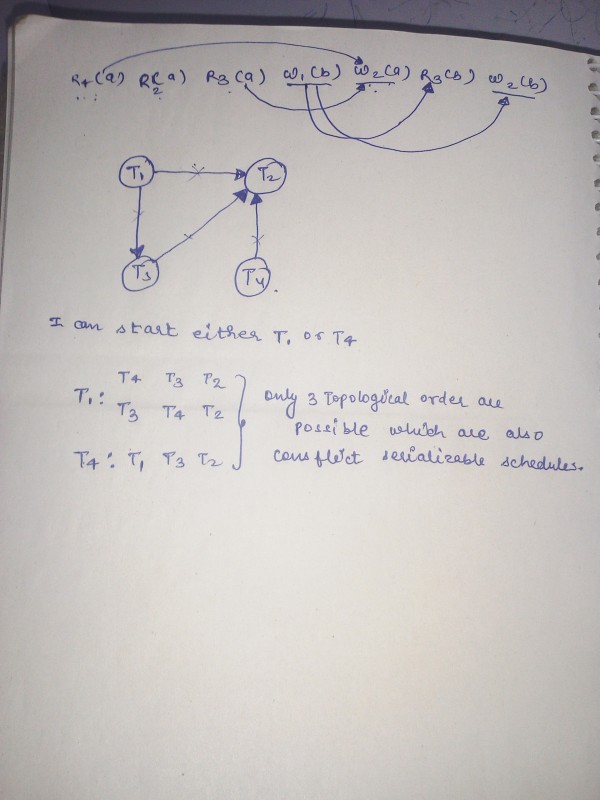 R4(a) R2(a) R3(a) W1(b) W2(a) R3(b) W2(b)
T1 T2
T3 T4
I can start either T1 or T4
T1: T4 T3 T2
T3 T4 T2
T4: T1 T3 T2
only 3 Topological order are
possible which are also
conflict serializable schedules.